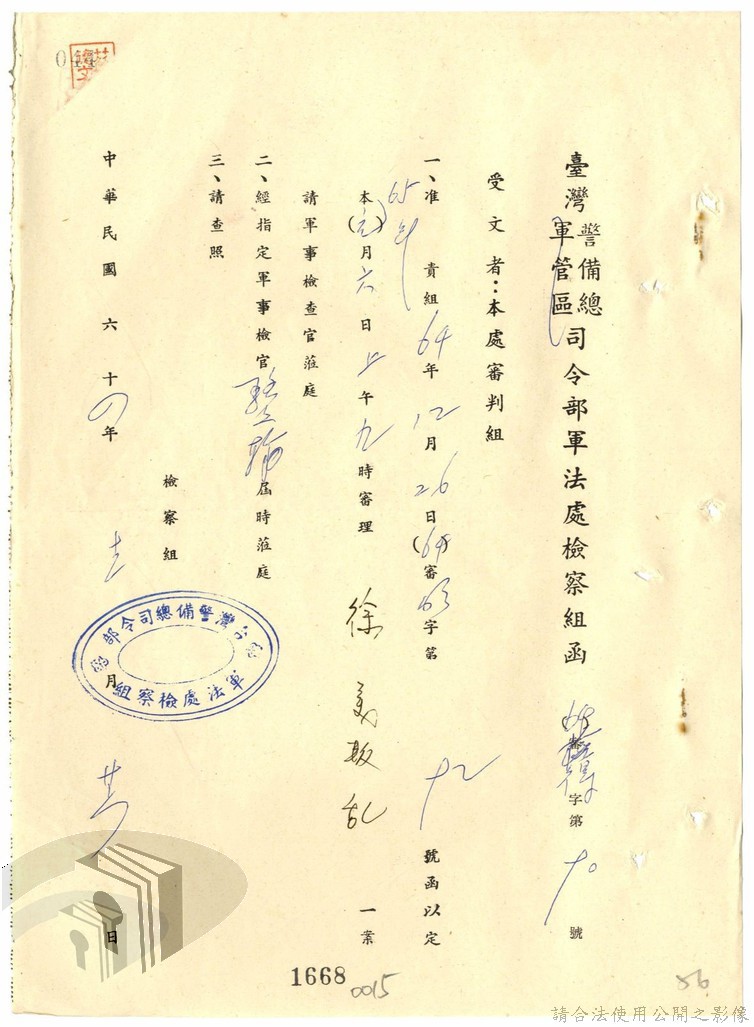 臺灣警備總軍管區司令部軍法處檢察組函
(64)字第十號
受文者:本處審判組
一、准貴組64年12月26日(64)審字第號函以定
65年
本(元)月六日上午九時審理徐美叛乱一案
請軍事檢查官蒞庭
二、經指定軍事檢官屆時蒞庭
三、請查照
檢察組
中華民國六十四年月日
台灣警備總司令部
軍法處檢察組
1668
0015
86
請合法使用公開之影像